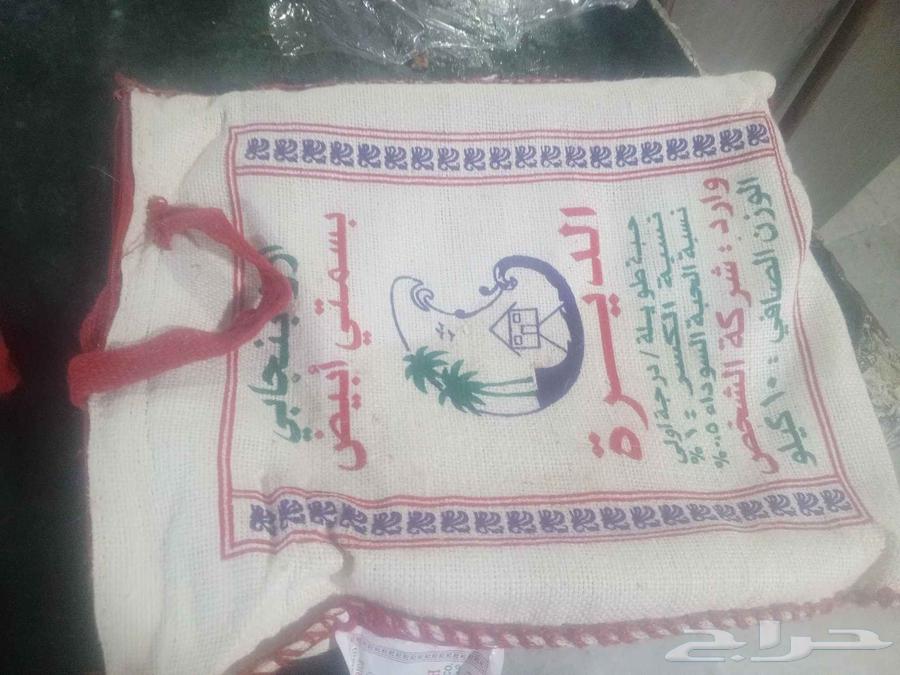 أرز بنجابي
بسمتي أبيض
الديرة
حبة طويلة / درجة اولى
نسبة الكسر : ١ %
نسبة الحبة السوداء ٠.٥ %
وارد : شركة الشخص
الوزن الصافي : ١٠ كيلو
حراج